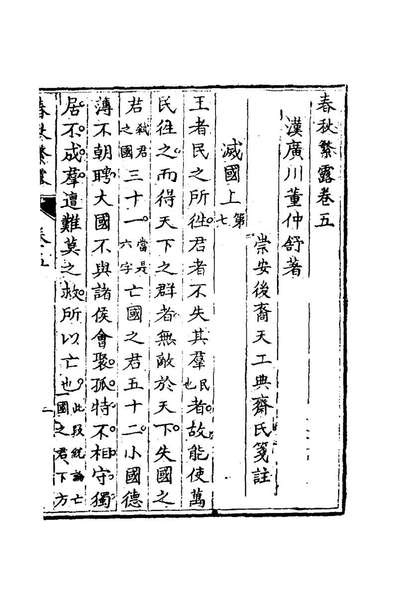 春秋繁露卷五
漢廣川董仲舒著
崇安後裔天工典齋氏箋註
滅國上第七
王者民之所往君者不失其羣民也者故能使萬
民往之而得天下之群者無敵於天下失國之
君弑君之國三十一當是六字亡國之君五十二小國德
薄不朝聘大國不與諸侯會聚孤特不相守獨
居不成羣遭難莫之救所以亡也此段統論亡國之君下方
春秋繁露
卷五
一